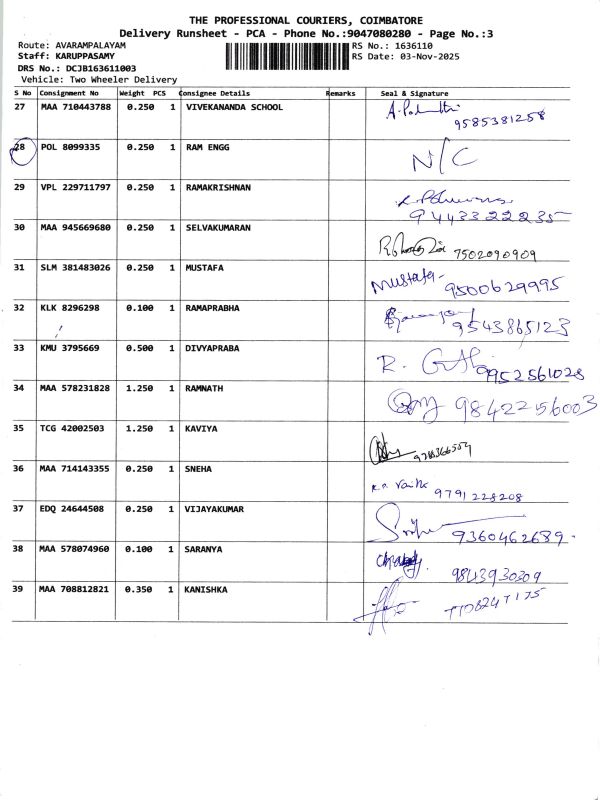 THE PROFESSIONAL COURIERS, COIMBATORE
Delivery Runsheet - PCA - Phone No.:9047080280 - Page No.:3
Route: AVARAMPALAYAM RS No.: 1636110
Staff: KARUPPASAMY RS Date: 03-Nov-2025
DRS No.: DCJB163611003
Vehicle: Two Wheeler Delivery
S No Consignment No Weight PCS Consignee Details Remarks Seal & Signature
27 MAA 710443788 0.250 1 VIVEKANANDA SCHOOL
9585381258
28 POL 8099335 0.250 1 RAM ENGG N/C
29 VPL 229711797 0.250 1 RAMAKRISHNAN
9443322235
30 MAA 945669680 0.250 1 SELVAKUMARAN
7502090909
31 SLM 381483026 0.250 1 MUSTAFA
Mustafa- 9500629995
32 KLK 8296298 0.100 1 RAMAPRABHA
9543865123
33 KMU 3795669 0.500 1 DIVYAPRABA
9952561028
34 MAA 578231828 1.250 1 RAMNATH
9842256003
35 TCG 42002503 1.250 1 KAVIYA
36 MAA 714143355 0.250 1 SNEHA
9791228208
37 EDQ 24644508 0.250 1 VIJAYAKUMAR
9360462689.
38 MAA 578074960 0.100 1 SARANYA
9843930309
39 MAA 708812821 0.350 1 KANISHKA